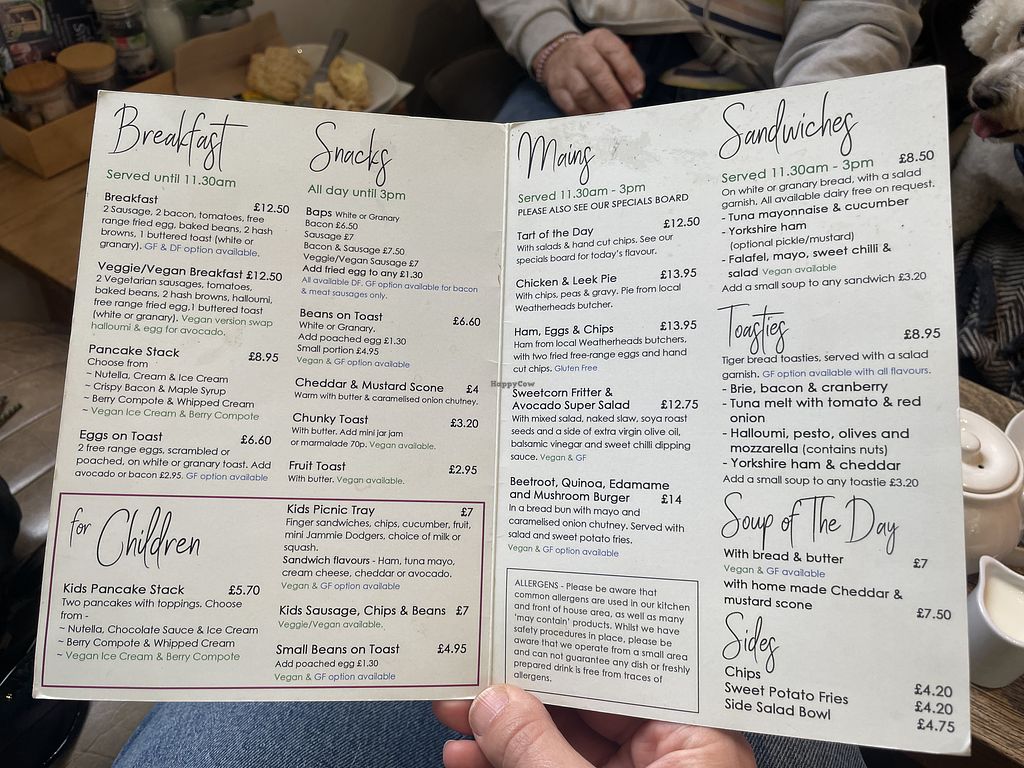 Breakfast
Served until 11.30am
Breakfast £12.50
2 Sausage, 2 bacon, tomatoes, free
range fried egg, baked beans, 2 hash
browns, 1 buttered toast (white or
granary). GF & DF option available.
Veggie/Vegan Breakfast £12.50
2 Vegetarian sausages, tomatoes,
baked beans, 2 hash browns, halloumi,
free range fried egg,1 buttered toast
(white or granary). Vegan version swap
halloumi & egg for avocado.
Pancake Stack £8.95
Choose from
~ Nutella, Cream & Ice Cream
~ Crispy Bacon & Maple Syrup
~ Berry Compote & Whipped Cream
~ Vegan Ice Cream & Berry Compote
Eggs on Toast £6.60
2 free range eggs, scrambled or
poached, on white or granary toast. Add
avocado or bacon £2.95. GF option available
Snacks
All day until 3pm
Baps White or Granary
Bacon £6.50
Sausage £7
Bacon & Sausage £7.50
Veggie/Vegan Sausage £7
Add fried egg to any £1.30
All available DF. GF option available for bacon
& meat sausages only.
Beans on Toast £6.60
White or Granary.
Add poached egg £1.30
Small portion £4.95
Vegan & GF option available
Cheddar & Mustard Scone £4
Warm with butter & caramelised onion chutney.
Chunky Toast £3.20
With butter. Add mini jar jam
or marmalade 70p. Vegan available.
Fruit Toast £2.95
With butter. Vegan available.
for Children
Kids Pancake Stack £5.70
Two pancakes with toppings. Choose
from -
~ Nutella, Chocolate Sauce & Ice Cream
~ Berry Compote & Whipped Cream
~ Vegan Ice Cream & Berry Compote
Kids Picnic Tray £7
Finger sandwiches, chips, cucumber, fruit,
mini Jammie Dodgers, choice of milk or
squash.
Sandwich flavours - Ham, tuna mayo,
cream cheese, cheddar or avocado.
Vegan & GF option available
Kids Sausage, Chips & Beans £7
Veggie/Vegan available.
Small Beans on Toast £4.95
Add poached egg £1.30
Vegan & GF option available
Mains
Served 11.30am - 3pm
PLEASE ALSO SEE OUR SPECIALS BOARD
Tart of the Day £12.50
With salads & hand cut chips. See our
specials board for today's flavour.
Chicken & Leek Pie £13.95
With chips, peas & gravy. Pie from local
Weatherheads butcher.
Ham, Eggs & Chips £13.95
Ham from local Weatherheads butchers,
with two fried free-range eggs and hand
cut chips. Gluten Free
HappyCow
Sweetcorn Fritter &
Avocado Super Salad £12.75
With mixed salad, naked slaw, soya roast
seeds and a side of extra virgin olive oil,
balsamic vinegar and sweet chilli dipping
sauce. Vegan & GF
Beetroot, Quinoa, Edamame
and Mushroom Burger £14
In a bread bun with mayo and
caramelised onion chutney. Served with
salad and sweet potato fries.
Vegan & GF option available
ALLERGENS - Please be aware that
common allergens are used in our kitchen
and front of house area, as well as many
'may contain' products. Whilst we have
safety procedures in place, please be
aware that we operate from a small area
and can not guarantee any dish or freshly
prepared drink is free from traces of
allergens.
Sandwiches
Served 11.30am - 3pm £8.50
On white or granary bread, with a salad
garnish. All available dairy free on request.
- Tuna mayonnaise & cucumber
- Yorkshire ham
(optional pickle/mustard)
- Falafel, mayo, sweet chilli &
salad Vegan available
Add a small soup to any sandwich £3.20
Toasties
£8.95
Tiger bread toasties, served with a salad
garnish. GF option available with all flavours.
- Brie, bacon & cranberry
- Tuna melt with tomato & red
onion
- Halloumi, pesto, olives and
mozzarella (contains nuts)
- Yorkshire ham & cheddar
Add a small soup to any toastie £3.20
Soup of The Day
With bread & butter £7
Vegan & GF available
with home made Cheddar &
mustard scone £7.50
Sides
Chips £4.20
Sweet Potato Fries £4.20
Side Salad Bowl £4.75